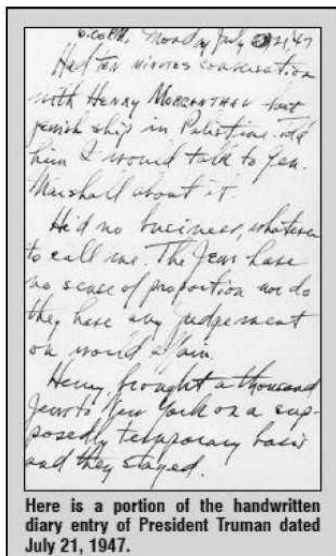 6:00 P.M. Monday July 21, 47
Had ten minutes conversation
with Henry Morgenthau about
Jewish ship in Palistine. Told
him I would talk to Gen.
Marshall about it.
He'd no business, whatever
to call me. The Jews have
no sense of proportion nor do
they have any judgement
on world affairs.
Henry brought a thousand
Jews to New York on a sup-
posedly temporary basis
and they stayed.
Here is a portion of the handwritten
diary entry of President Truman dated
July 21, 1947.